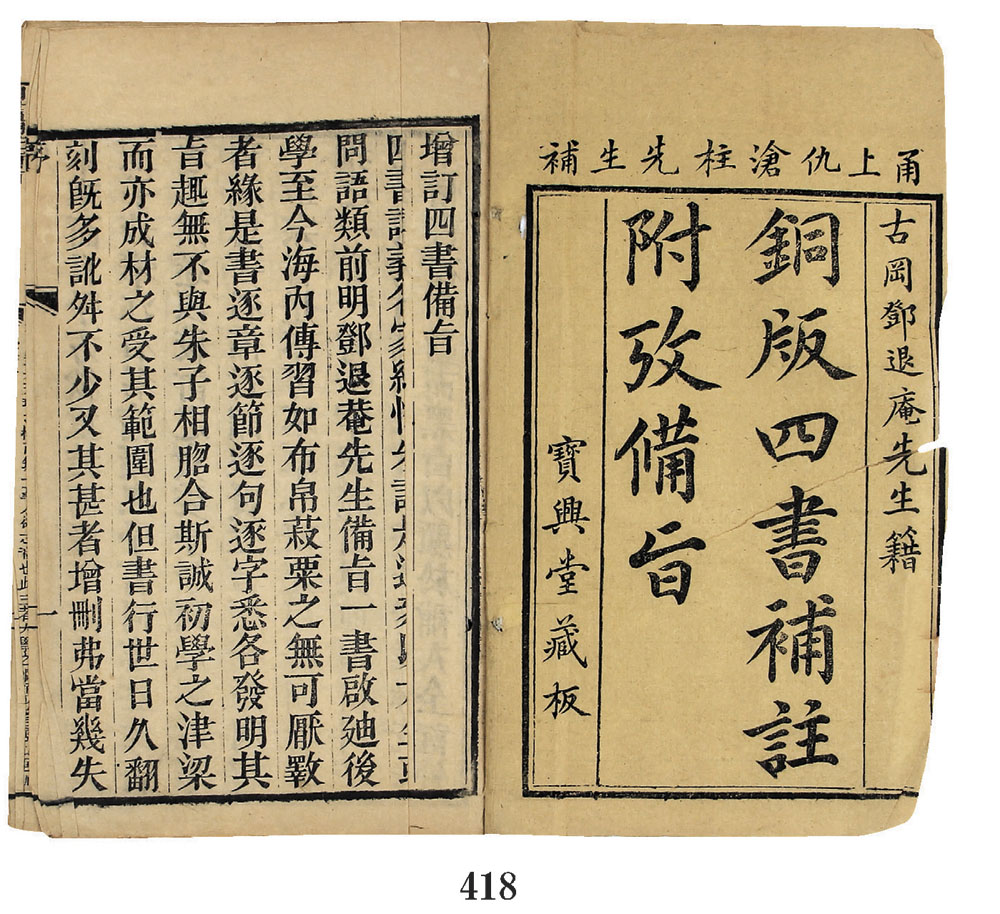 甬上仇滄柱先生補
古岡鄧退庵先生籍
銅版四書補註
附攷備旨
寶興堂藏板
增訂四書備旨
四書
問語類前明鄧退菴先生備旨一書啟廸後
學至今海内傳習如布帛菽粟之無可厭斁
者緣是書逐章逐節逐句逐字悉各發明其
旨趣無不與朱子相脗合斯誠初學之津梁
而亦成材之受其範圍也但書行世日久翻
刻旣多訛舛不少又其甚者增刪弗當幾失
序
418